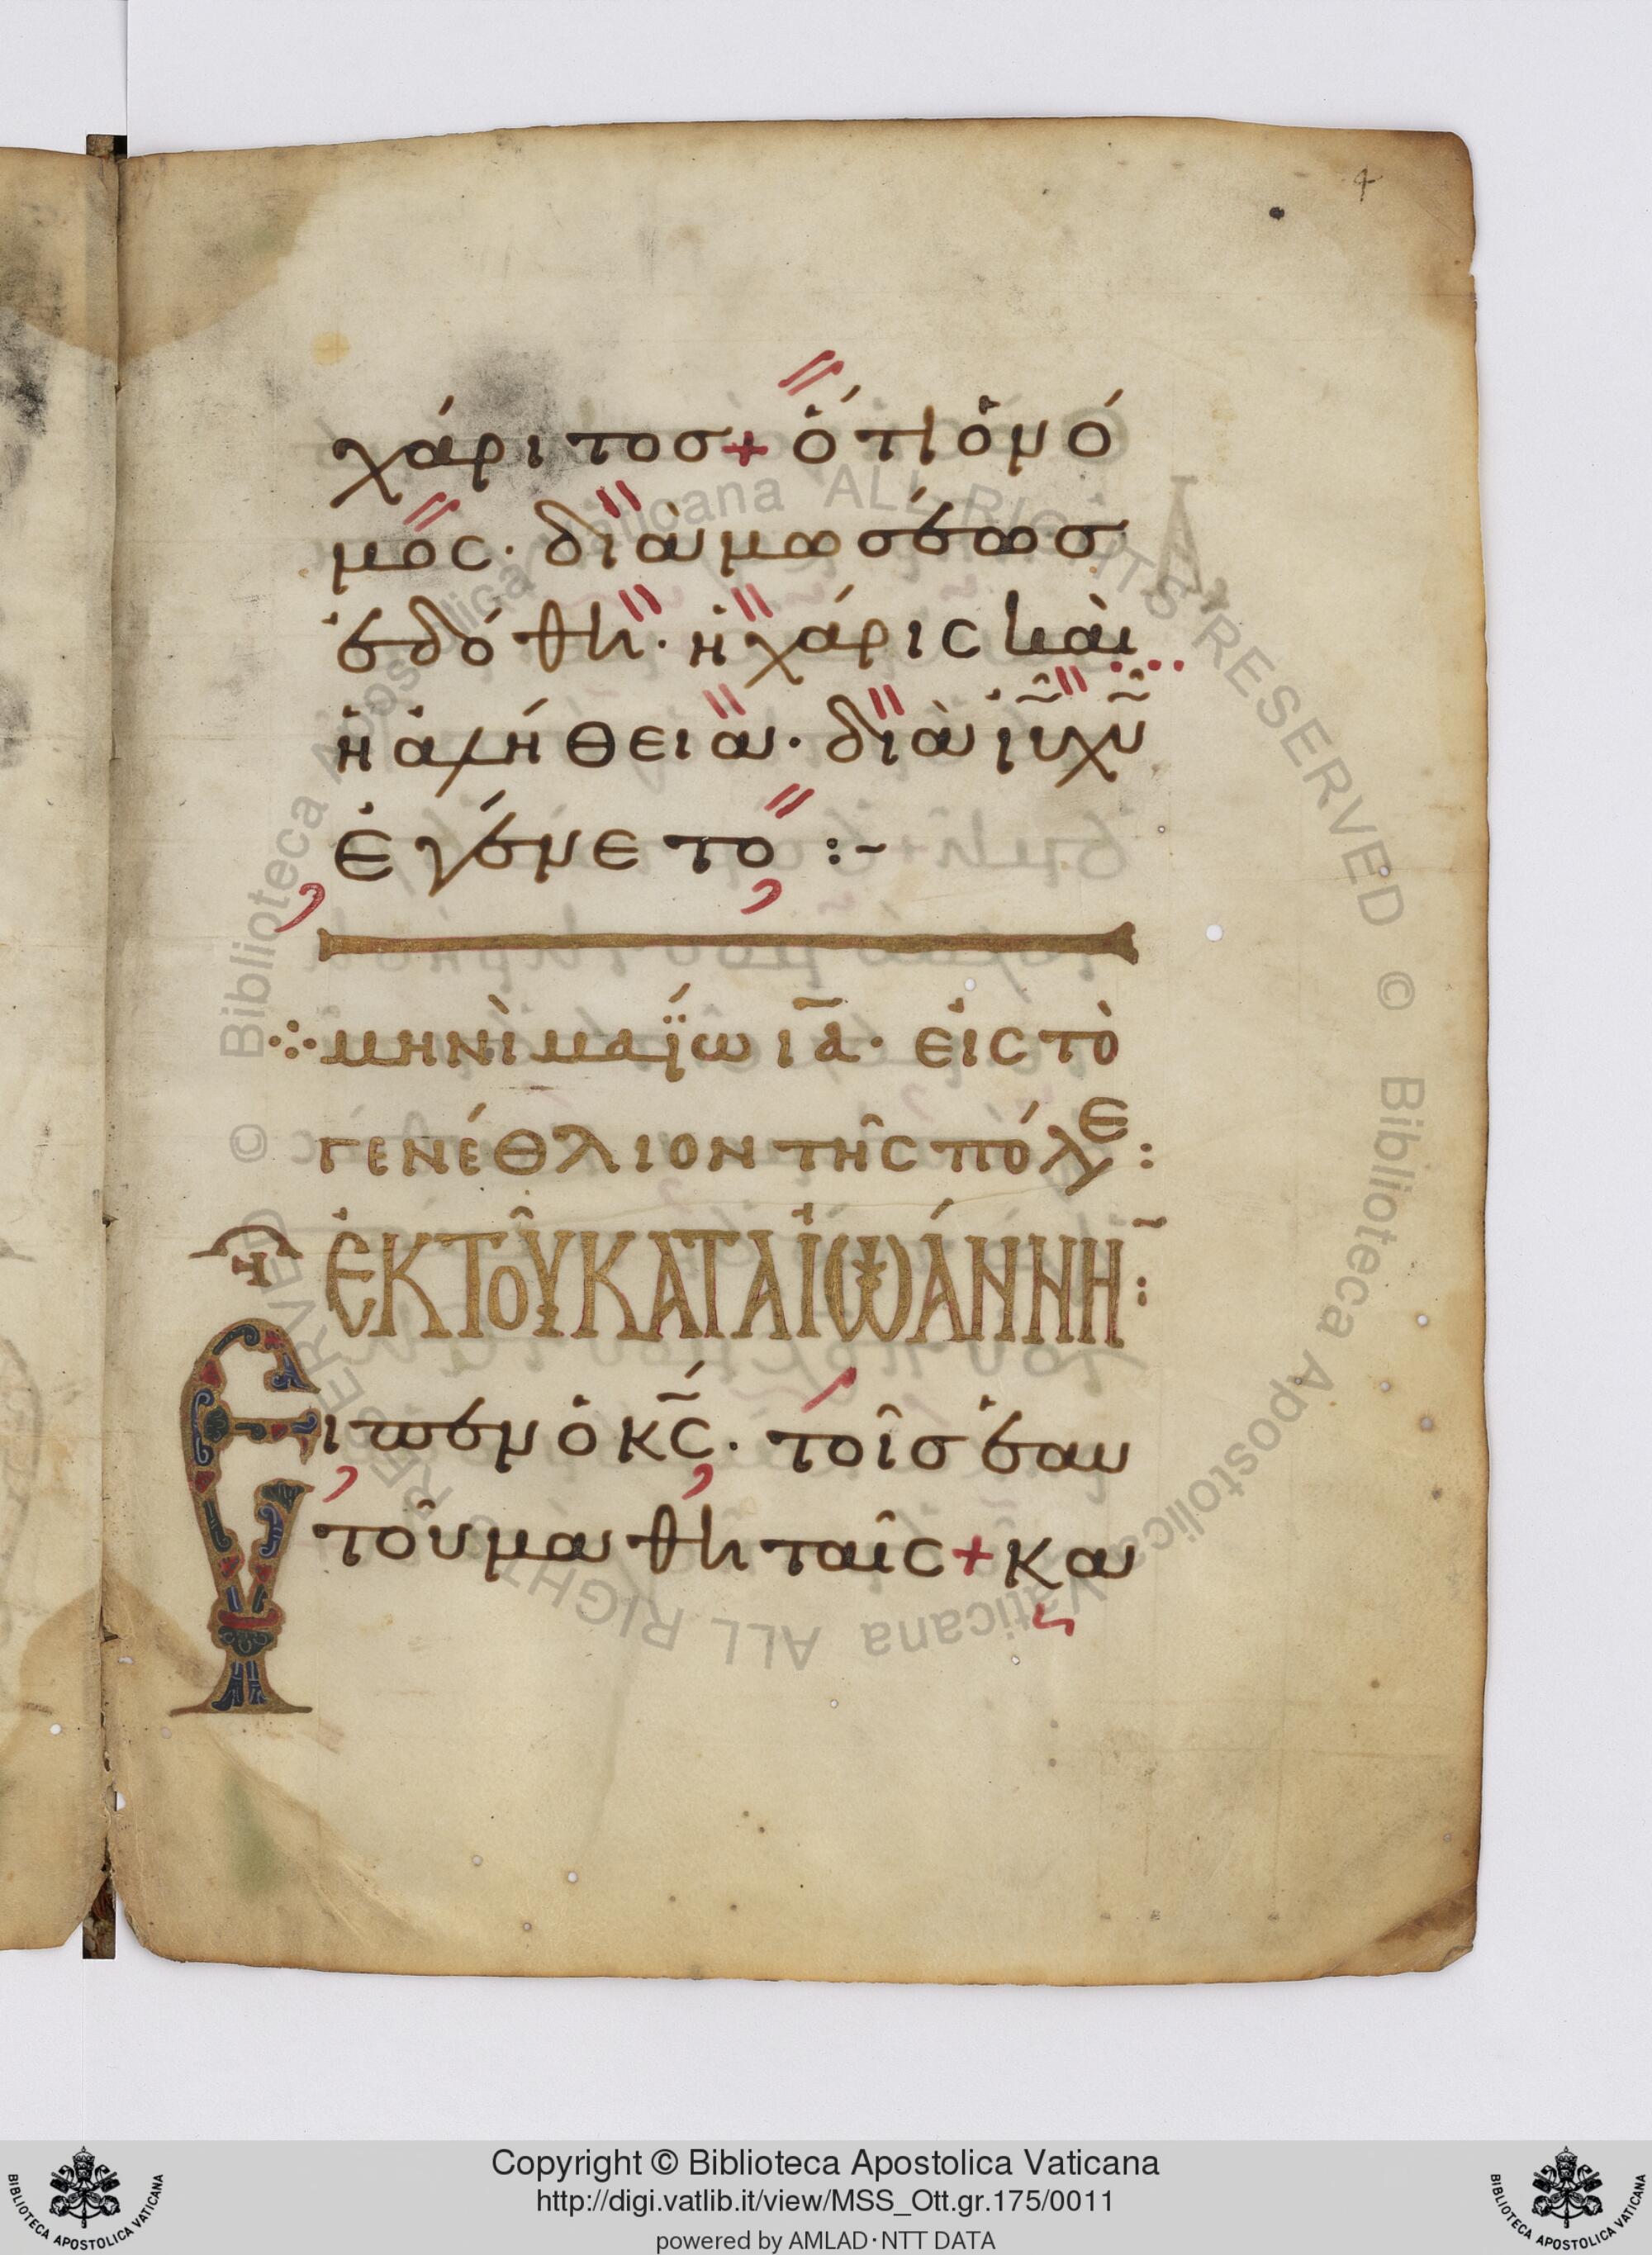 4
χάριτοσ+ ὅτι ὁ νό
μος· διὰ μωσέωσ
ἐδόθη· ἡ χάρις καὶ
ἡ ἀλήθεια· διὰ ἰ̅υ̅ χ̅υ̅
ἐγένετο :~
⁘ μηνὶ μαΐω ι̅α̅· εἰς τὸ
γενέθλιον τῆς πόλε :
ἘΚ ΤΟῦ ΚΑΤΑ ἸΩΆΝΝΗ̅ :
Εἶπεν ὁ κ̅ς̅· τοῖσ ἑαυ
τοῦ μαθηταῖς+ κα
© Biblioteca Apostolica Vaticana ALL RIGHTS RESERVED © Biblioteca Apostolica Vaticana ALL RIGHTS RESERVED
Copyright © Biblioteca Apostolica Vaticana
http://digi.vatlib.it/view/MSS_Ott.gr.175/0011
powered by AMLAD·NTT DATA
BIBLIOTECA APOSTOLICA VATICANA
BIBLIOTECA APOSTOLICA VATICANA